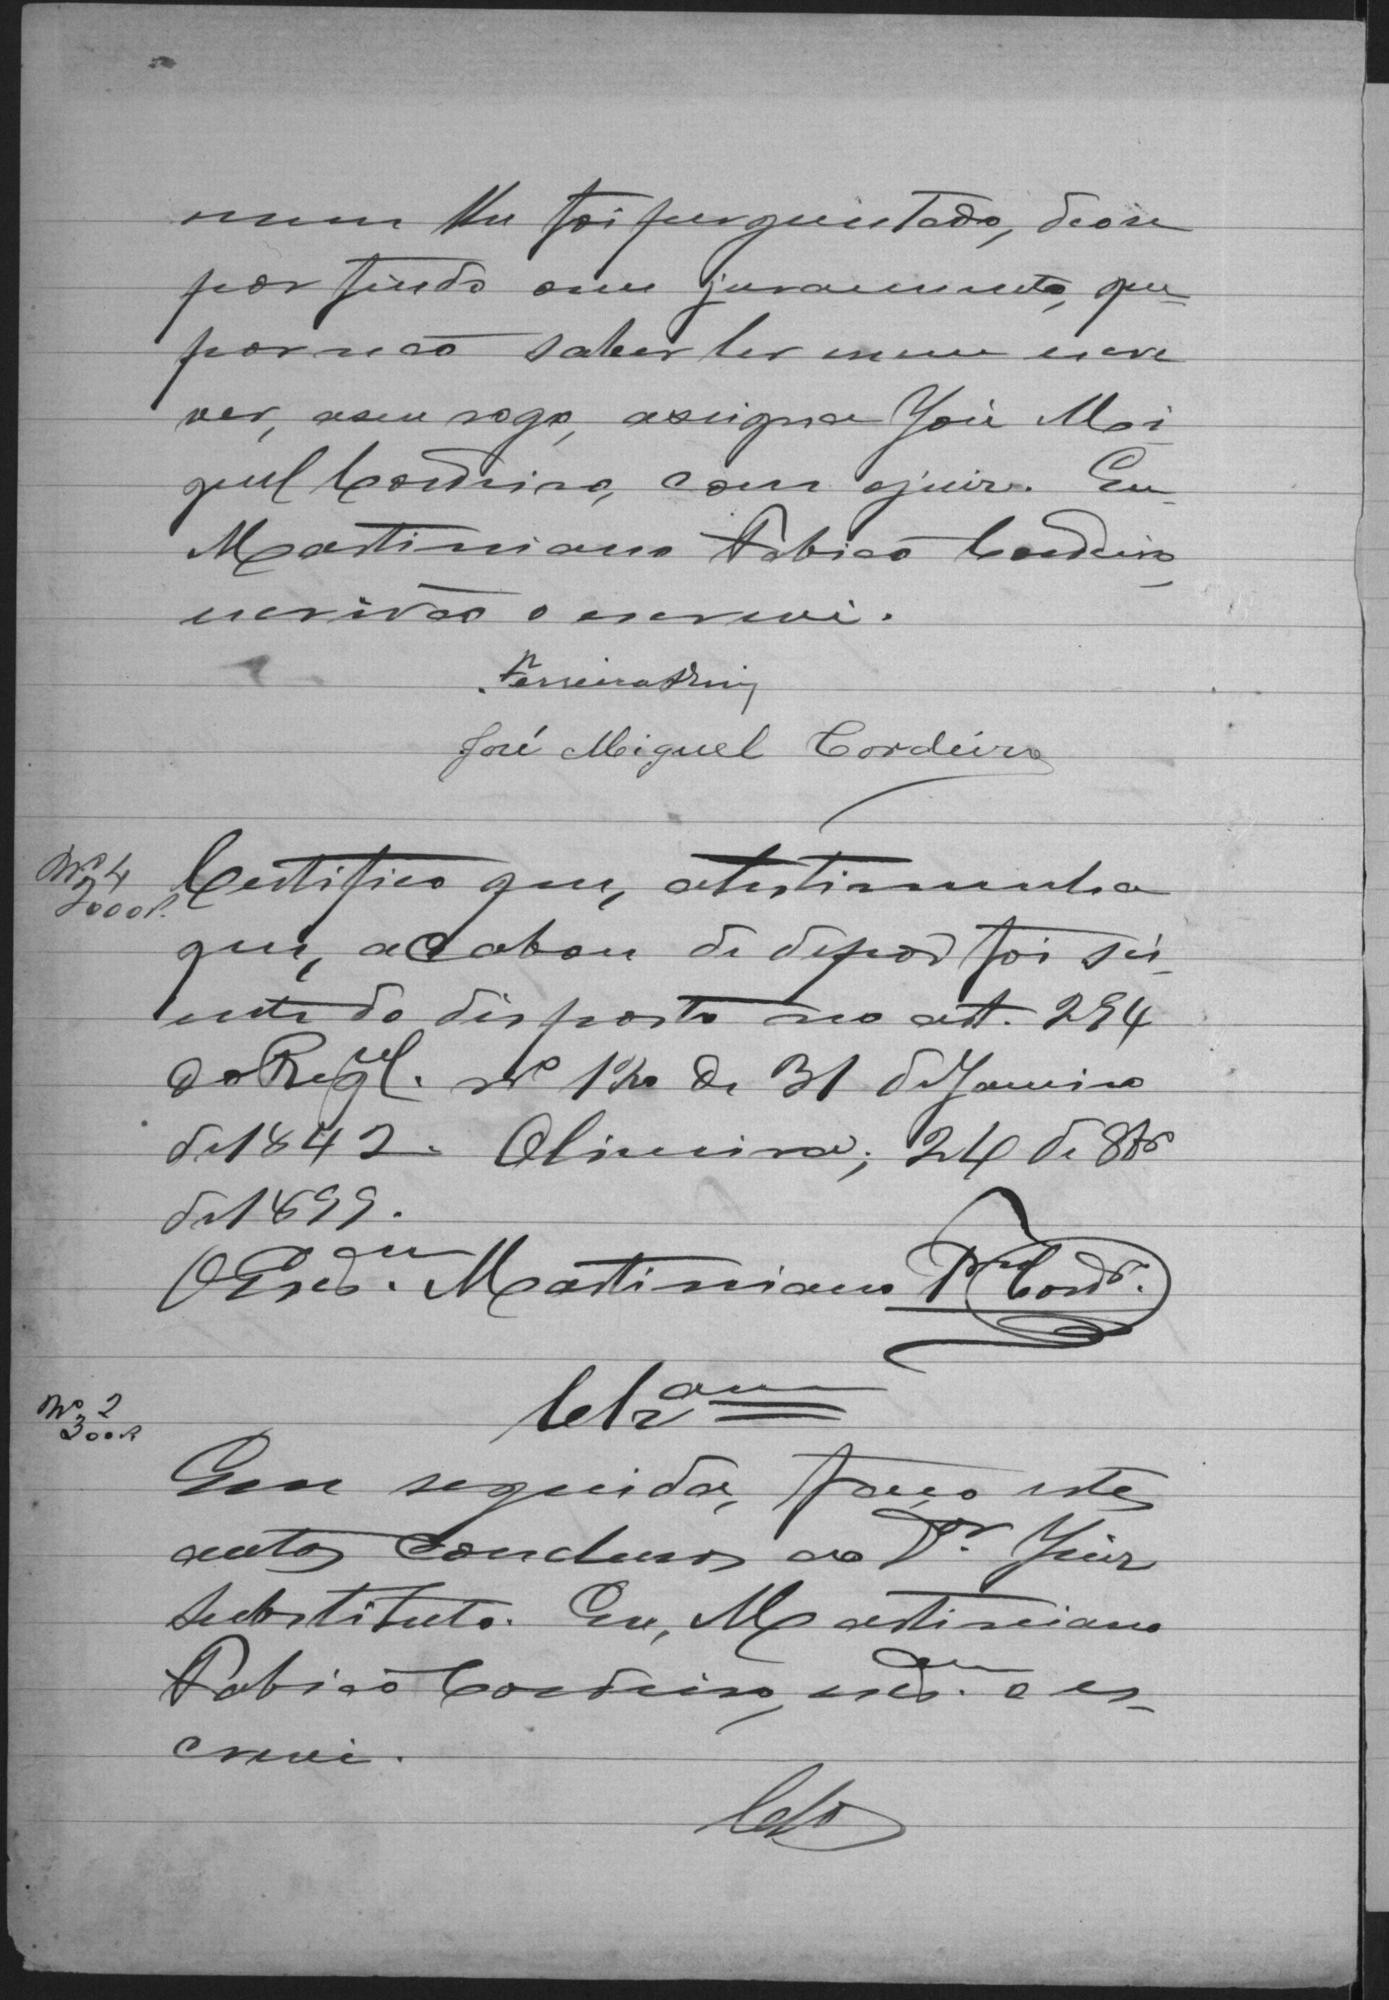 nem lhe foi perguntado, deose
por findo seu juramento, que
por não saber ler nem escre
ver, a seu rogo, assigna José Mi-
guel Cordeiro, com o juiz. Eu
Martiniano Fabião Cordeiro,
escrivão o escrevi.
Ferreira Diniz
José Miguel Cordeiro
Nº 4
2000 rs.
Certifico que, a testimunha
que, acabou de depor foi sci-
ente do disposto no art. 294
do Regl. nº 120 de 31 de Janeiro
de 1842. Oliveira, 24 de 8bro
de 1899.
O Escram. Martiniano F. Cordro.
Nº 2
300 rs
Clzam
Em seguida, faço estes
autos conclusos ao Dr. Juiz
substituto. Eu, Martiniano
Fabião Cordeiro, escram. o es-
crevi.
Clso